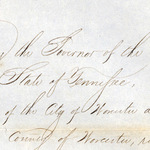 the Governor of the
State of Tennessee,
of the City of Worcester a
County of Worcester,